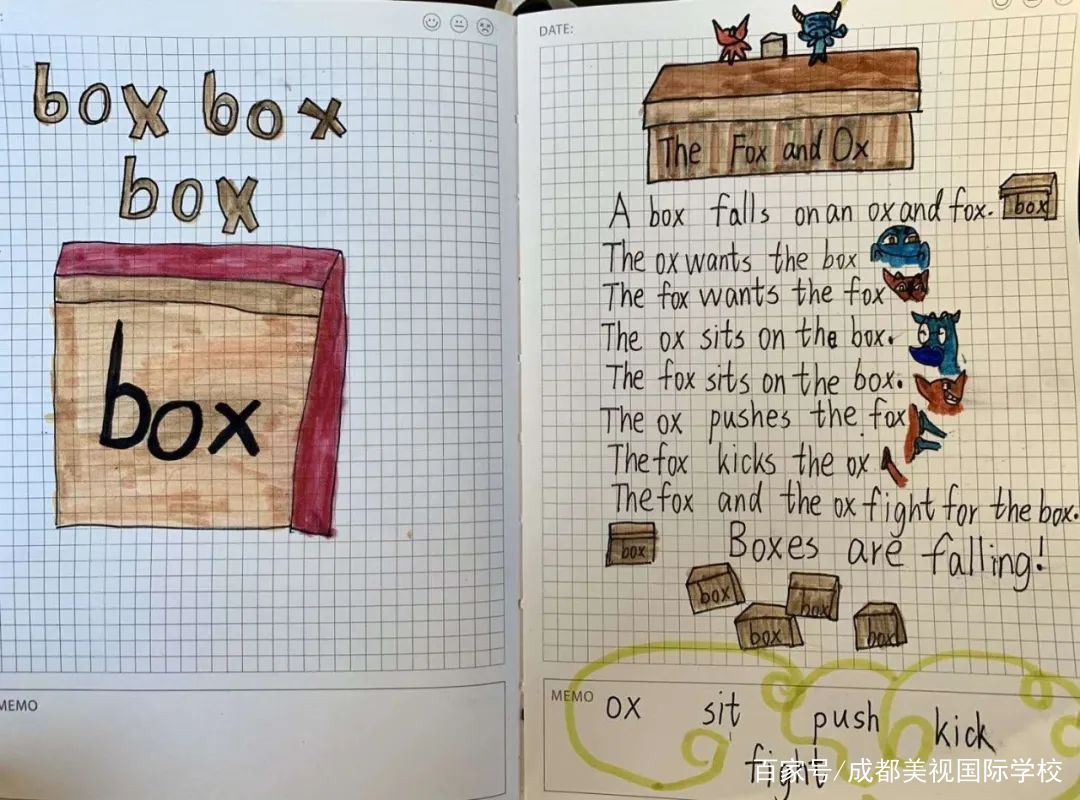 box box
box
box
MEMO
DATE:
The Fox and Ox
A box falls on an ox and fox.
box
The ox wants the box
The fox wants the fox
The ox sits on the box.
The fox sits on the box.
The ox pushes the fox
The fox kicks the ox
The fox and the ox fight for the box.
box
Boxes are falling!
box
box
box
box
MEMO
ox sit push kick
fight
百家号/成都美视国际学校